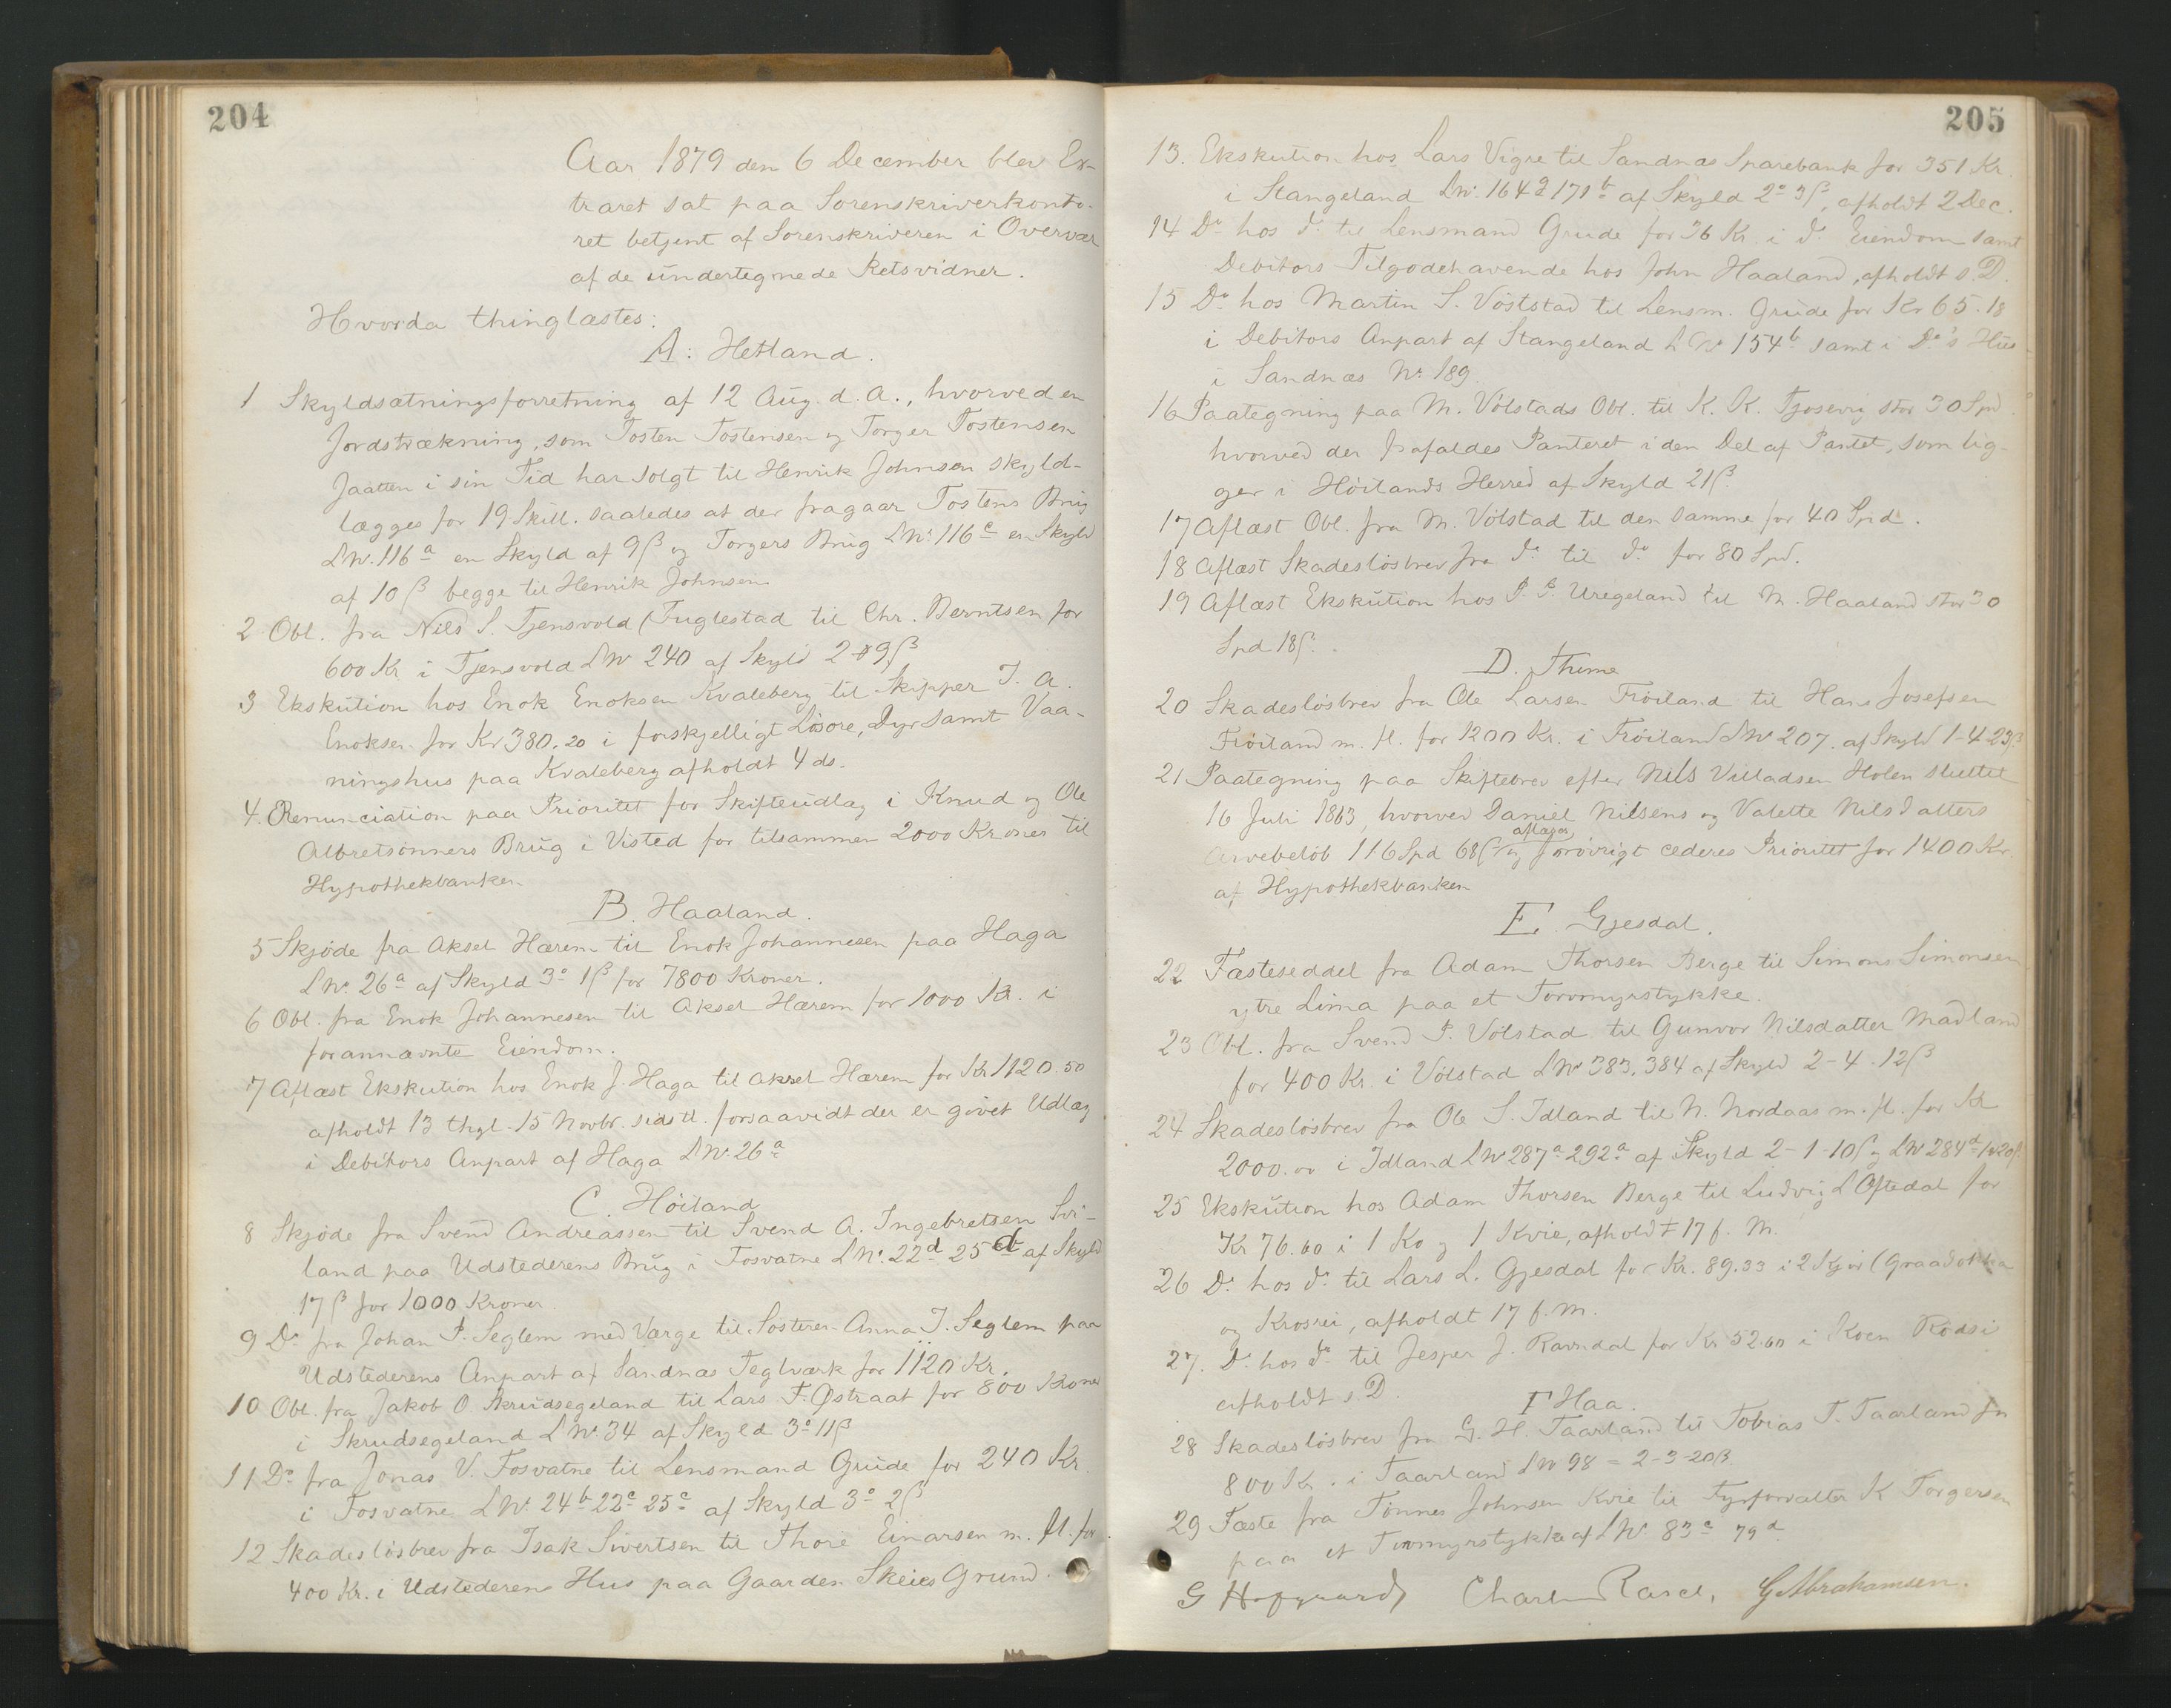 204
Aar 1879 den 6 December blev Ex-
traret sat paa Sorenskriverkonto-
ret betjent af Sorenskriveren i Overvær
af de undertegnede Retsvidner.
Hvorda thinglæstes:
A: Hetland.
1 Skyldsætningsforretning af 12 Aug. d. A., hvorved en
Jordstrækning, som Tosten Tostensen og Torger Tostensen
Jaatten i sin Tid har solgt til Henrik Johnsen skyld-
lægges for 19 Skill. saaledes at der fragaar Tostens Brug
LNr. 116a en Skyld af 9 β og Torgers Brug LNr. 116c en Skyld
af 10 β begge til Henrik Johnsen
2 Obl. fra Nils S. Tjensvold (Fuglestad til Chr. Berntsen for
600 Kr i Tjensvold LNr 240 af Skyld 2 9 β
3 Ekskution hos Enok Enoksen Kvaleberg til Skipper T. A.
Enoksen for Kr 380.20 i forskjelligt Løsøre, Dyr samt Vaa-
ningshus paa Kvaleberg afholdt 4 ds.
4. Renunciation paa Prioritet for Skifteudlæg i Knud og Ole
Albretsønners Brug i Visted for tilsammen 2000 Kroner til
Hypothekbanken
B. Haaland.
5 Skjøde fra Aksel Hærem til Enok Johannesen paa Haga
LNr. 26a af Skyld 3o 1 β for 7800 Kroner.
6 Obl. fra Enok Johannesen til Aksel Hærem for 1000 Kr. i
forannævnte Eiendom.
7 Aflæst Ekskution hos Enok J. Haga til Aksel Hærem for Kr 1120.50
afholdt 13 thgl. 15 Novbr. sidstl. forsaavidt der er givet Udlæg
i Debitors Anpart af Haga LNr. 26a
C. Höiland
8 Skjøde fra Svend Andreassen til Svend A. Ingebretsen Svi-
land paa Udstederens Brug i Fosvatne LNr. 22d 25d af Skyld
17 β for 1000 Kroner
9 Do fra Johan P. Seglem med Værge til Søsteren Anna J. Seglem paa
Udstederens Anpart af Sandnæs Teglværk for 1120 Kr.
10 Obl. fra Jakob O. Skrudsegeland til Lars T. Østraat for 800 Kroner
i Skrudsegeland LNr 34 af Skyld 3o 11 β
11 Do fra Jonas V. Fosvatne til Lensmand Grude for 240 Kr
i Fosvatne LNr. 24b 22c 25c af Skyld 3o 2 β
12 Skadesløsbrev fra Isak Sivertsen til Thore Einarsen m. fl. for
400 Kr. i Udstederens Hus paa Gaarden Skeies Grund.
205
13. Ekskution hos Lars Vigre til Sandnæs Sparebank for 351 Kr.
i Stangeland LNr. 164 171b af Skyld 2o 3 β, afholdt 2 Dec.
14 Do hos do til Lensmand Grude for 36 Kr. i do Eiendom samt
Debitors Tilgodehavende hos John Haaland, afholdt s. D.
15 Do hos Martin S. Völstad til Lensm. Grude for Kr 65.18
i Debitors Anpart af Stangeland LNr 154b samt i Do's Hus
i Sandnæs Nr. 189
16 Paategning paa M. Völstads Obl. til K. K. Tjosevig stor 30 Spd
hvorved der frafaldes Panteret i den Del af Pantet, som lig-
ger i Höilands Herred af Skyld 21 β.
17 Aflæst Obl. fra M. Völstad til den samme for 40 Spd.
18 Aflæst Skadesløsbrev fra do til do for 80 Spd.
19 Aflæst Ekskution hos P. P. Uregeland til M. Haaland stor 30
Spd 18 β.
D. Thime
20 Skadesløsbrev fra Ole Larsen Fröiland til Hans Josefsen
Fröiland m. fl. for 1200 Kr. i Fröiland LNr 207. af Skyld 1-4-23 β
21 Paategning paa Skiftebrev efter Nils Villadsen Holen sluttet
16 Juli 1863, hvorved Daniel Nilsens og Valette Nilsdatters
Arvebeløb 116 Spd 68 β aflæses og forøvrigt cederes Prioritet for 1400 Kr.
af Hypothekbanken
E. Gjesdal.
22 Fæsteseddel fra Adam Thorsen Berge til Simon Simonsen
ytre Lima paa et Torvmyrstykke.
23 Obl. fra Svend P. Völstad til Gunvor Nilsdatter Madland
for 400 Kr. i Völstad LNr 383, 384 af Skyld 2-4-12 β
24 Skadesløsbrev fra Ole S. Idland til N. Nordaas m. fl. for Kr
2000.00 i Idland LNr 287a 292a af Skyld 2-1-10 β og LNr 284d
25 Ekskution hos Adam Thorsen Berge til Ludvig L Oftedal for
Kr 76.60 i 1 Ko og 1 Kvie, afholdt 17 f. M.
26 Do hos do til Lars L. Gjesdal for Kr. 89.33 i 2 Kjør (
og Krosrei, afholdt 17 f. M.
27. Do hos do til Jesper J. Ravndal for Kr 52.60 i Koen Rödsi
afholdt s. D.
F Haa.
28 Skadesløsbrev fra G. H. Taarland til Tobias T. Taarland for
800 Kr. i Taarland LNr 98 = 2-3-20 β
29 Fæste fra Tönnes Johnsen Kvie til Fyrforvalter K Torgersen
paa et Torvmyrstykke af LNr. 83c 79d
G Hofgaard Charl Rasch, G Abrahamsen.